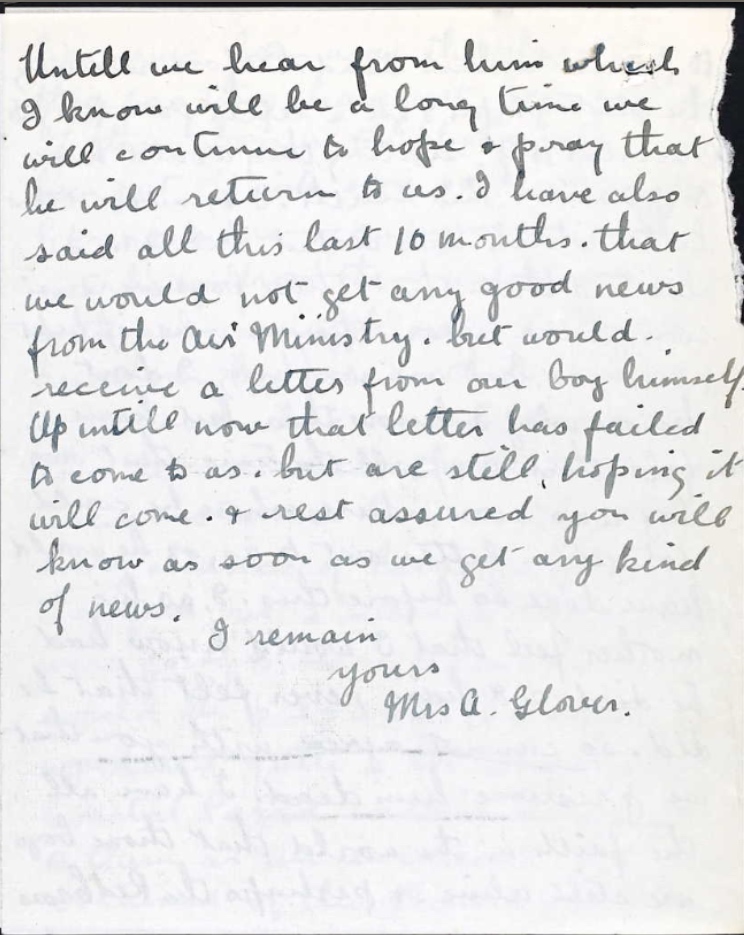 Untill we hear from him which
I know will be a long time we
will continue to hope & pray that
he will return to us. I have also
said all this last 10 months. that
we would not get any good news
from the Air Ministry. but would.
receive a letter from our boy himself
Up untill now that letter has failed
to come to us. but are still, hoping it
will come. & rest assured you will
know as soon as we get any kind
of news.
I remain
yours
Mrs A. Glover.